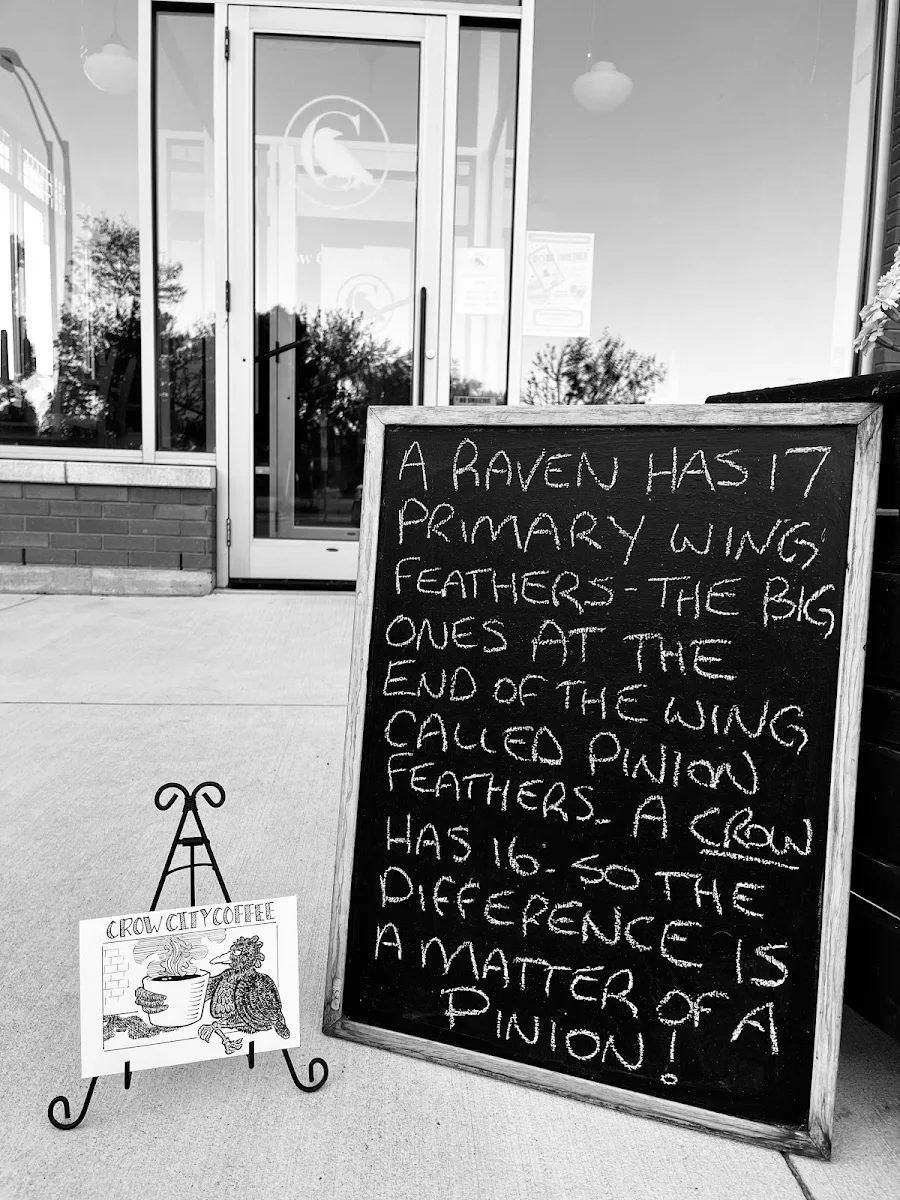 A RAVEN HAS 17
PRIMARY WING
FEATHERS - THE BIG
ONES AT THE
END OF THE WING
CALLED PINION
FEATHERS. A CROW
HAS 16. SO THE
DIFFERENCE IS
A MATTER OF A
PINION!
CROW CITY COFFEE
C